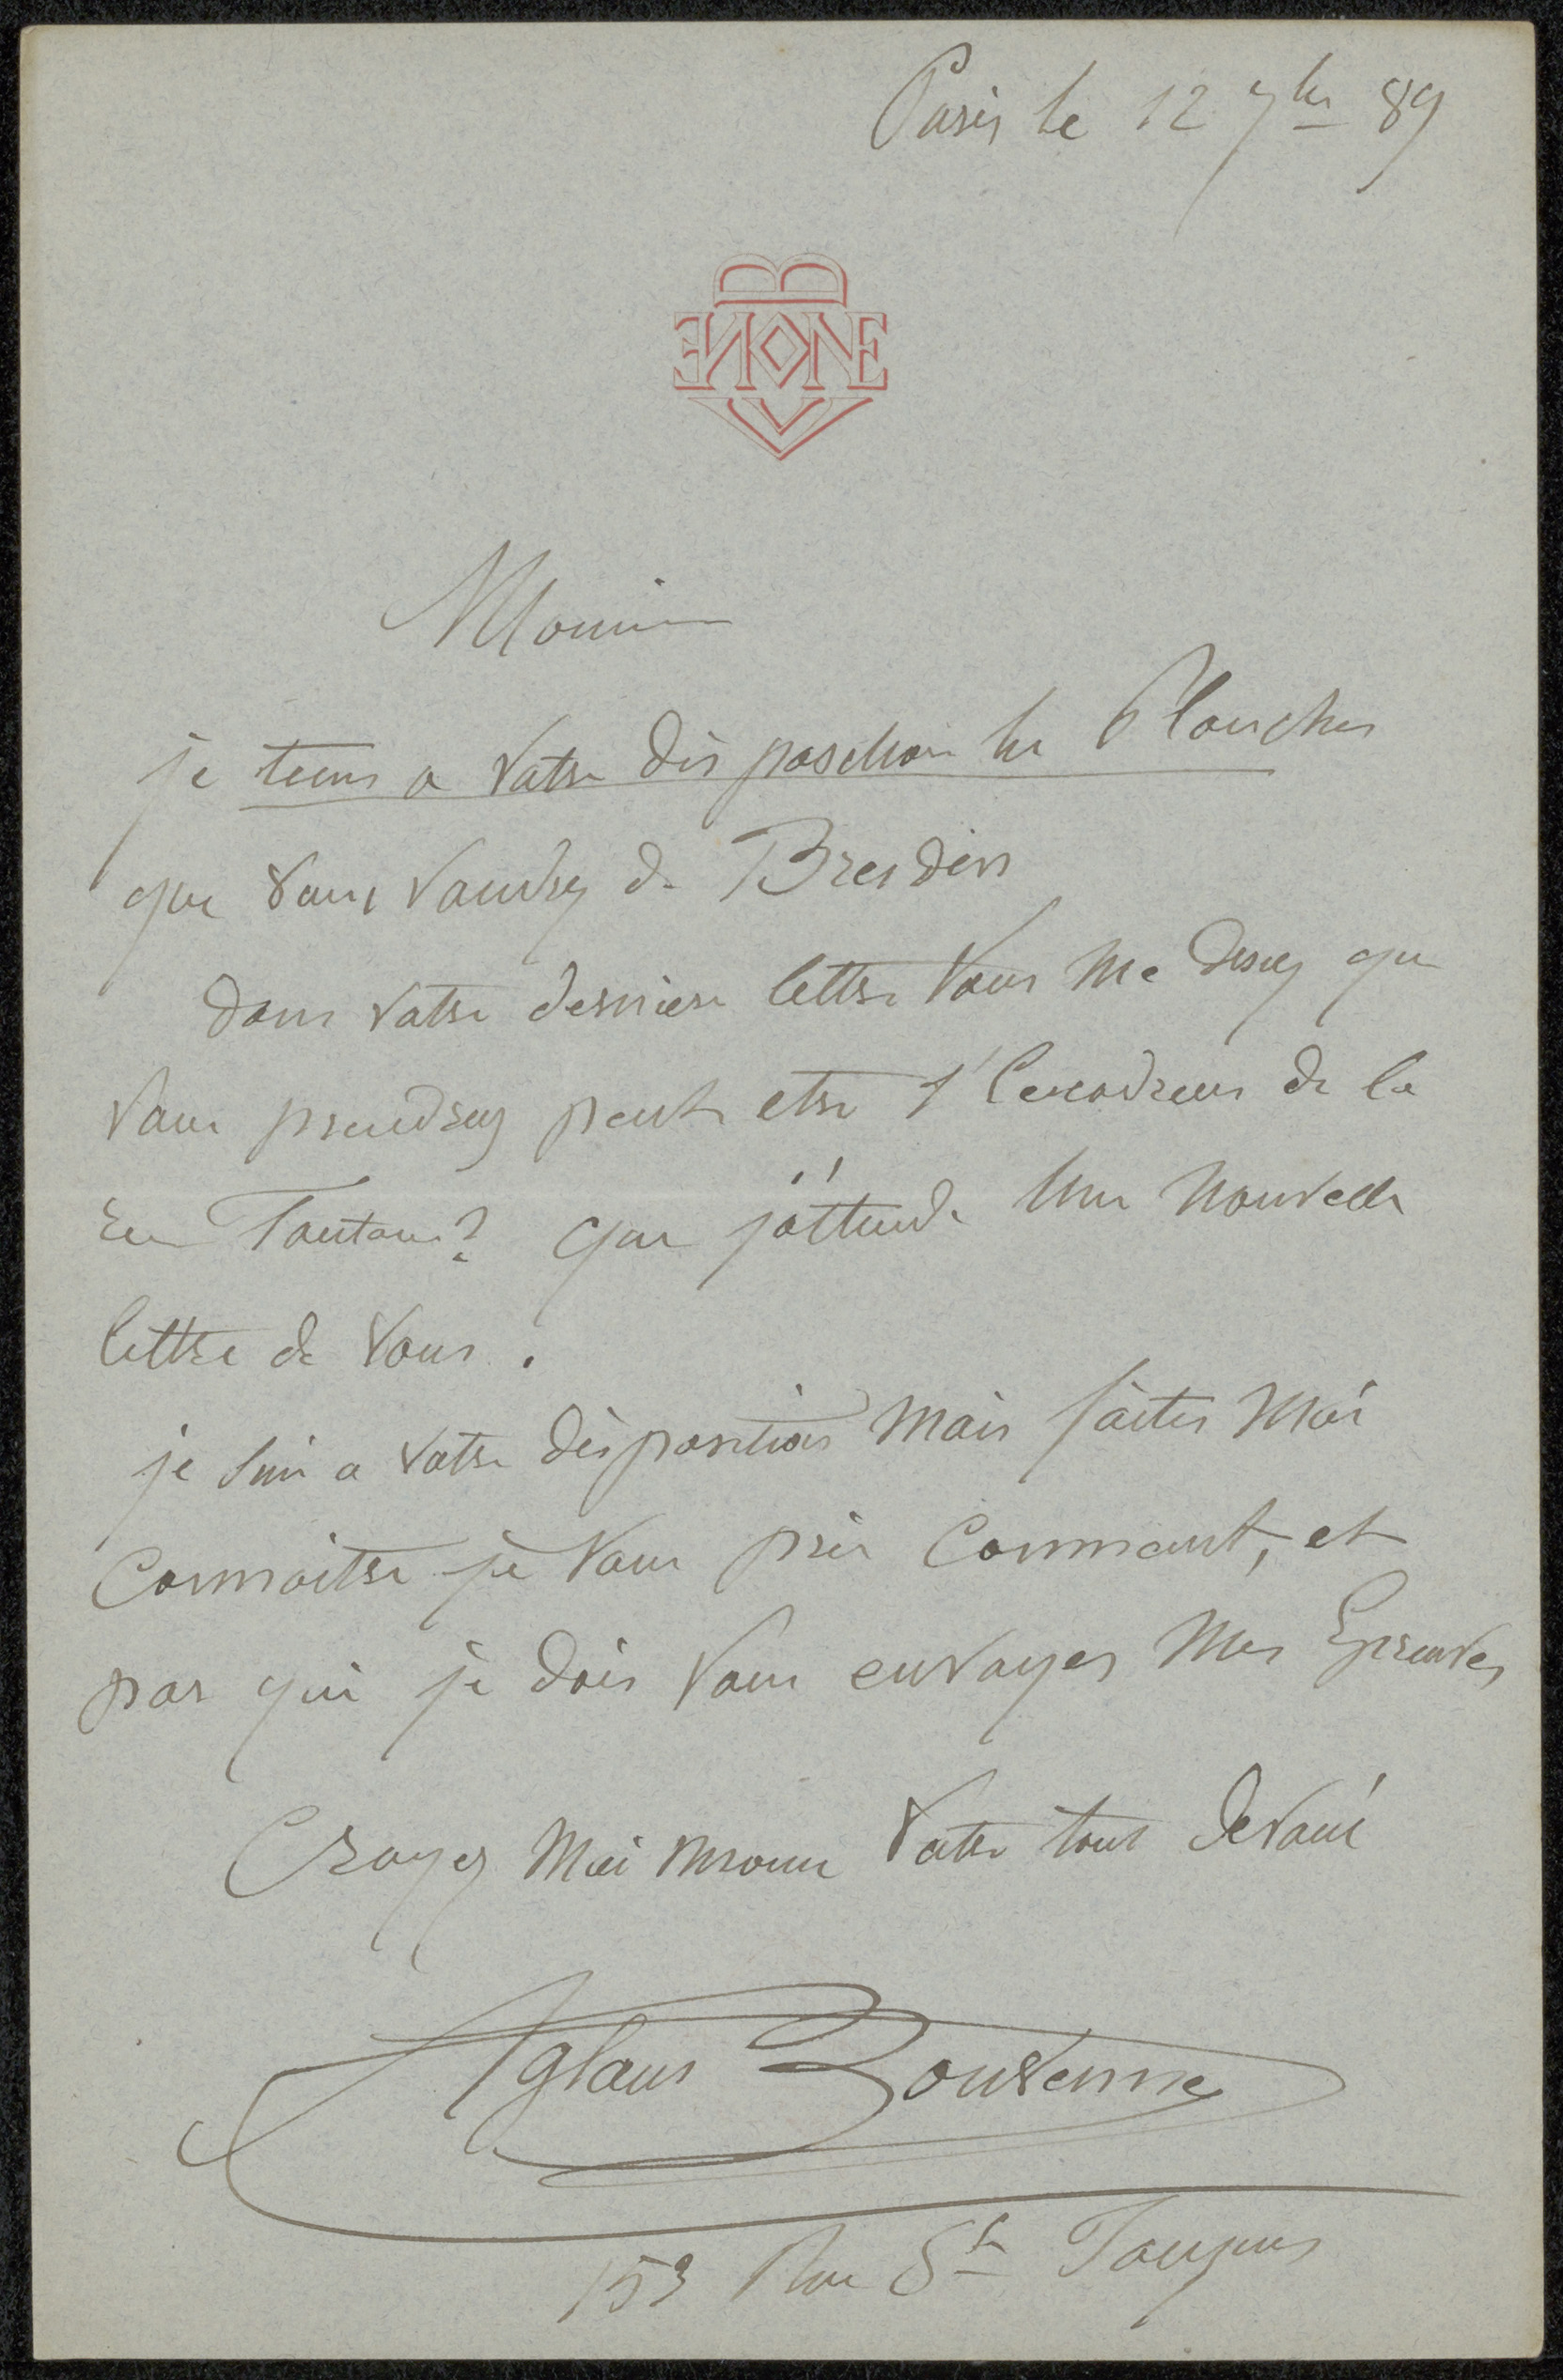 Paris le 12 7bre 89
BOUVENNE
Monsieur
je tiens a votre disposition les Planches
que vous voudrez de Bresdin
dans votre derniere lettre vous me disiez que
vous prendrez peut etre l'encadreur de la
rue Taitbout? que j'attende une nouvelle
lettre de vous.
je suis a votre disposition mais faites moi
connaitre je vous prie comment, et
par qui je dois vous envoyer mes Epreuves
Croyez moi votre tout devoué
Aglaus Bouvenne
153 Rue St Jacques